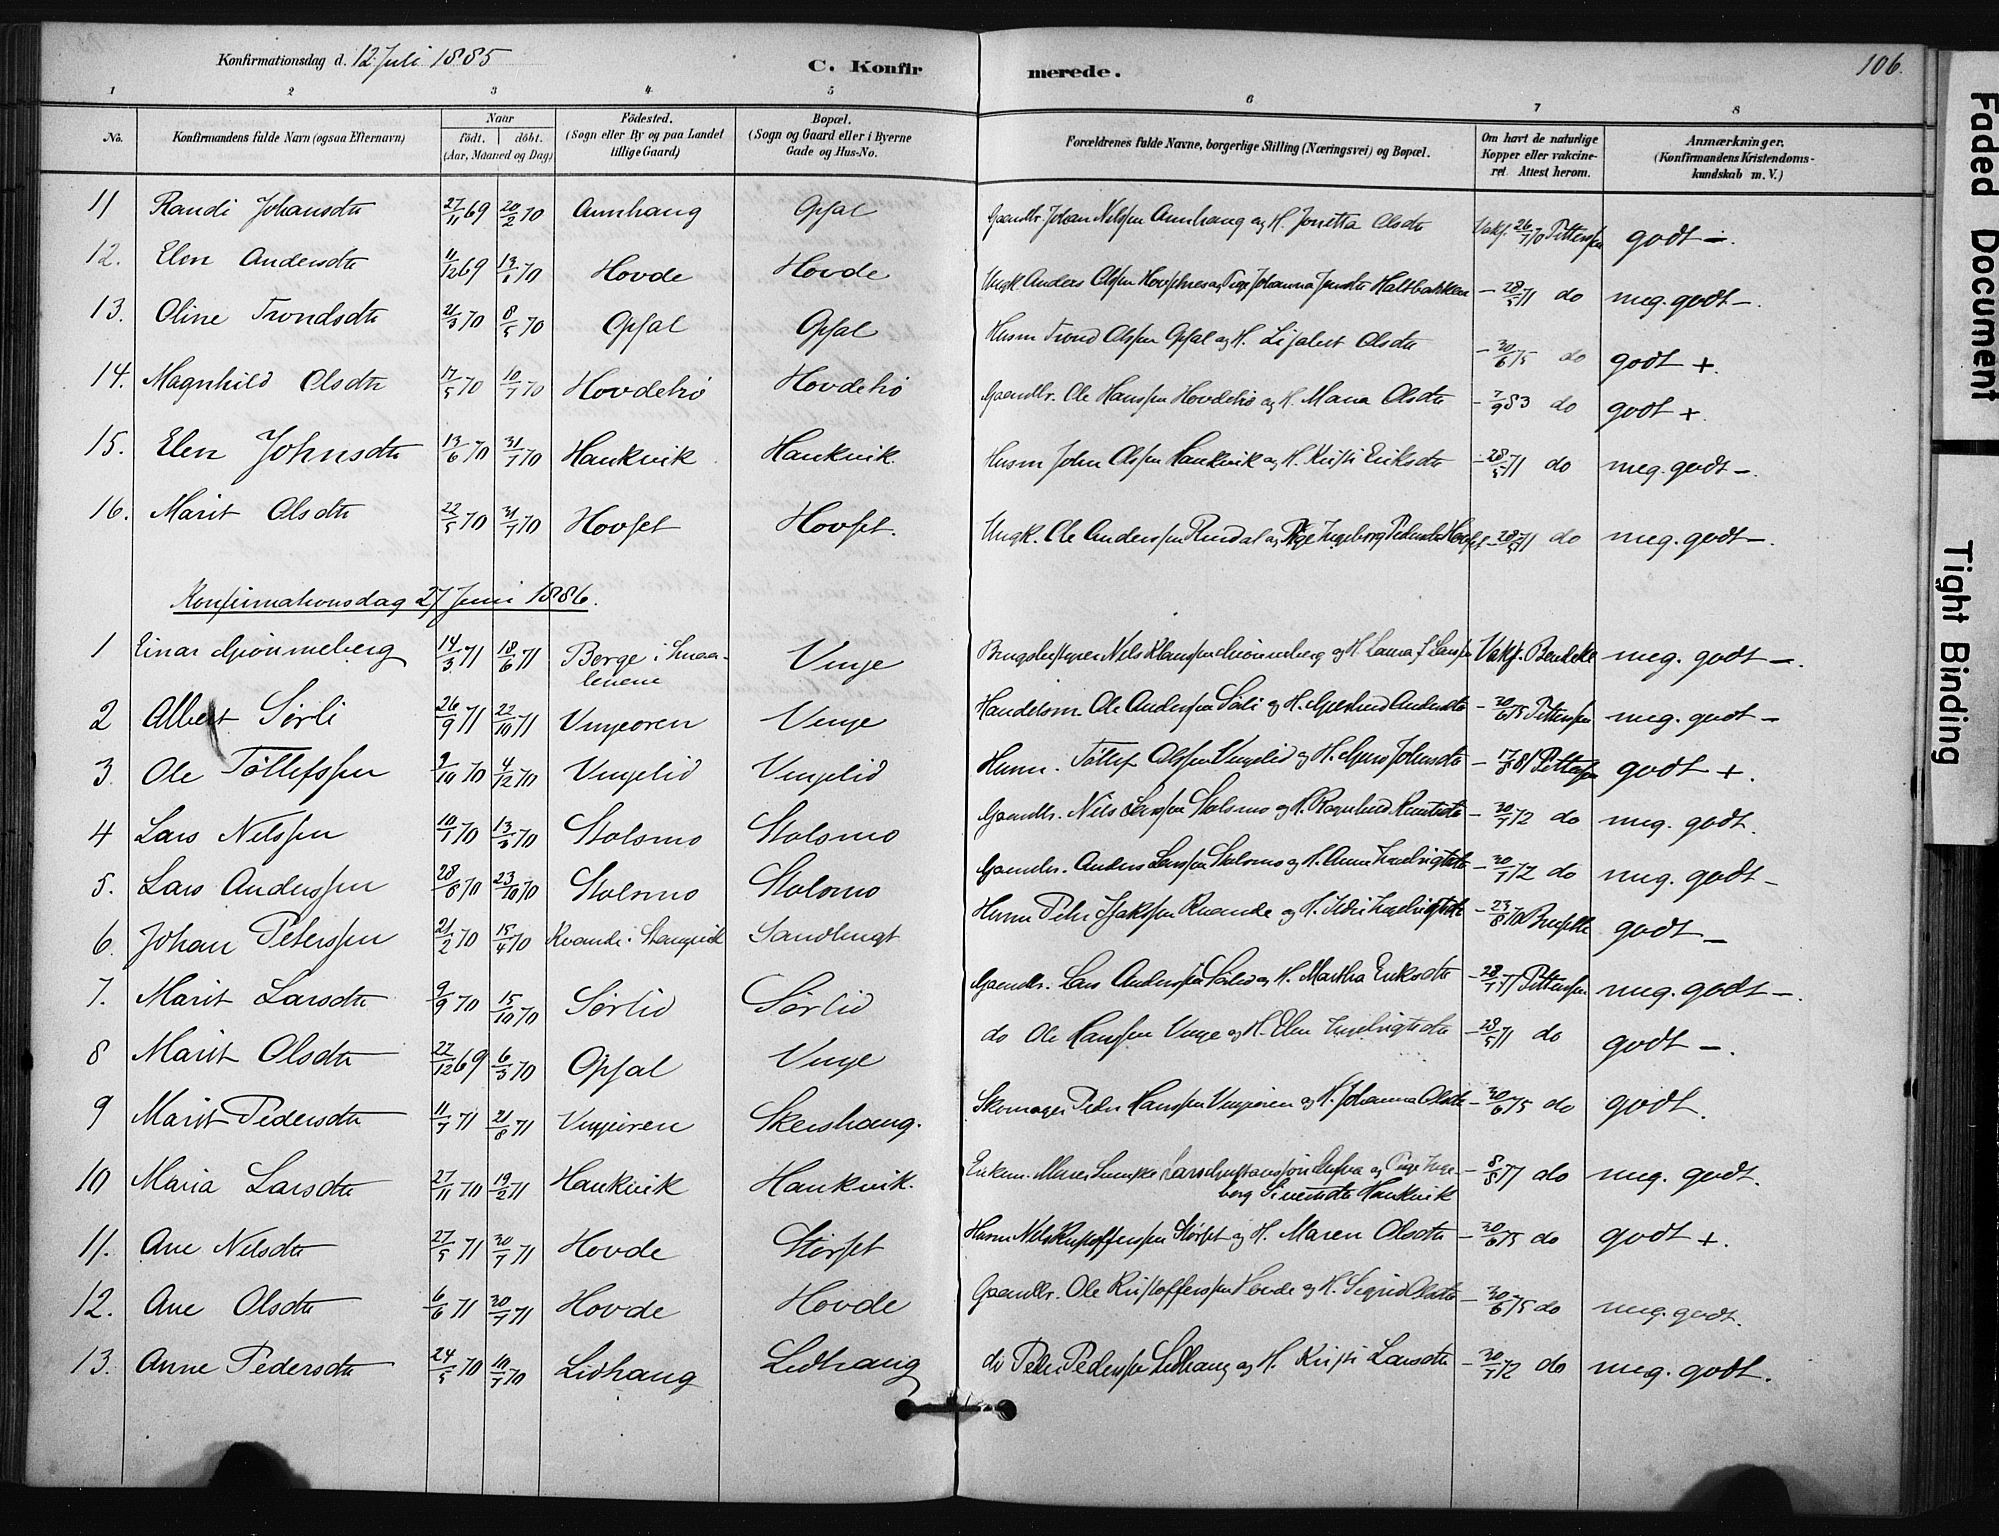 Konfirmationsdag d. 12 Juli 1885
C. Konfir merede.
106.
1 2 3 4 5 6 7 8
No.
Konfirmandens fulde Navn (ogsaa Efternavn)
Naar
födt. döbt.
(Aar, Maaned og Dag)
Födested.
(Sogn eller By og paa Landet
tillige Gaard)
Bopæl.
(Sogn og Gaard eller i Byerne
Gade og Hus-No.
Forældrenes fulde Navne, borgerlige Stilling (Næringsvei) og Bopæl.
Om havt de naturlige
Kopper eller vakcine-
ret. Attest herom.
Anmærkninger.
(Konfirmandens Kristendoms-
kundskab m. V.)
11 Randi Johansdtr 27/11 69 20/2 70 Aunhaug Opfal Gaardbr. Johan Nilssen Aunhaug og H. Jonetta Olsdtr Vakf. 26/7 70 Pettersen godt –.
12. Elen Andersdtr 11/12 69 13/1 70 Hovde Hovde Ungk. Anders Olssen og Pige Johanna – 28/5 71 do meg. godt –.
13. Oline Trondsdtr 21/3 70 8/5 70 Opfal Opfal Husm Trond Olssen Opfal og H. Olsdtr – 30/6 75 do godt +.
14. Magnhild Olsdtr 17/5 70 10/7 70 Hovdetrö Hovdetrö Gaardbr. Ole Hanssen Hovdetrö og H. Maria Olsdtr – 7/9 83 do godt +.
15. Elen Johnsdtr 13/6 70 31/7 70 Haukvik Haukvik. Husm John Olssen Haukvik og H. Kirsti Eriksdtr – 28/5 71 do meg. godt –.
16. Marit Olsdtr 22/5 70 31/7 70 Hovset Hovset. Ungk. Ole Anderssen Rindal og Pige Ingeborg Pedersdtr Hovset – 28/5 71 do meg. godt –.
Konfirmationsdag 27 Juni 1886.
1 Einar Grönneberg 14/3 71 18/6 71 Borge i Smaa-
lenene Vinje Nils og H. Laura Vakf. meg. godt –.
2 Albert Sörli 26/9 71 22/10 71 Vinjeören Vinje Handelsm. Ole Anderssen Sörli og H. Andersdtr – 30/6 75 Pettersen meg. godt –
3. Ole Töllefssen 9/10 70 4/12 70 Vingelid Vingelid Husm. Töllef Olssen Vingelid og H. Guro Johnsdtr – 17/8 81 Pettersen godt +.
4 Lars Nilssen 10/1 70 13/3 70 Stolsmo Stolsmo Gaardbr. Nils Larssen Stolsmo og H. Ragnhild Knutsdtr – 30/7 72 do meg. godt.
5. Lars Anderssen 28/8 70 23/10 70 Stolsmo Stolsmo Gaardbr. Anders Larssen Stolsmo og H. Anne Ingebrigtsdtr – 30/7 72 do meg. godt –
6. Johan Peterssen 21/2 70 15/4 70 Kvande i Stangvik Sandbugt Husm Peder Isakssen Kvande og H. Ingebrigtsdtr – 23/8 70 godt –
7. Marit Larsdtr 9/9 70 15/10 70 Sörlid Sörlid Gaardbr. Lars Anderssen Sörlid og H. Martha Eriksdtr – 28/7 71 Pettersen meg. godt –.
8 Marit Olsdtr 22/12 69 6/3 70 Opfal Vinje do Ole Hanssen Vinje og H. Elen Ingebrigtsdtr – 28/5 71 do godt –.
9 Marit Pedersdtr 11/7 71 21/8 71 Vinjeören Skeishaug. Skomager Peder Hanssen Vinjeören og H. Johanna Olsdtr – 30/6 75 do godt.
10 Maria Larsdtr 27/11 70 19/2 71 Haukvik Haukvik. Enkem. Svenske Lars og Pige Inge-
borg Sivertsdtr Haukvik – 8/5 77 do meg. godt.
11. Ane Nilsdtr 27/5 71 30/7 71 Hovde Störset Husm Nils Kristofferssen Störset og H. Maren Olsdtr – 30/6 75 do godt +.
12. Ane Olsdtr 6/6 71 30/7 71 Hovde Hovde Gaardbr. Ole Kristofferssen Hovde og H. Sigrid Olsdtr – 30/6 75 do meg. godt.
13. Anne Pedersdtr 24/5 70 10/7 70 Lidhaug Lidhaug do Peder Pederssen Lidhaug og H. Kirsti Larsdtr – 30/7 72 do meg. godt.
Faded Document
Tight Binding